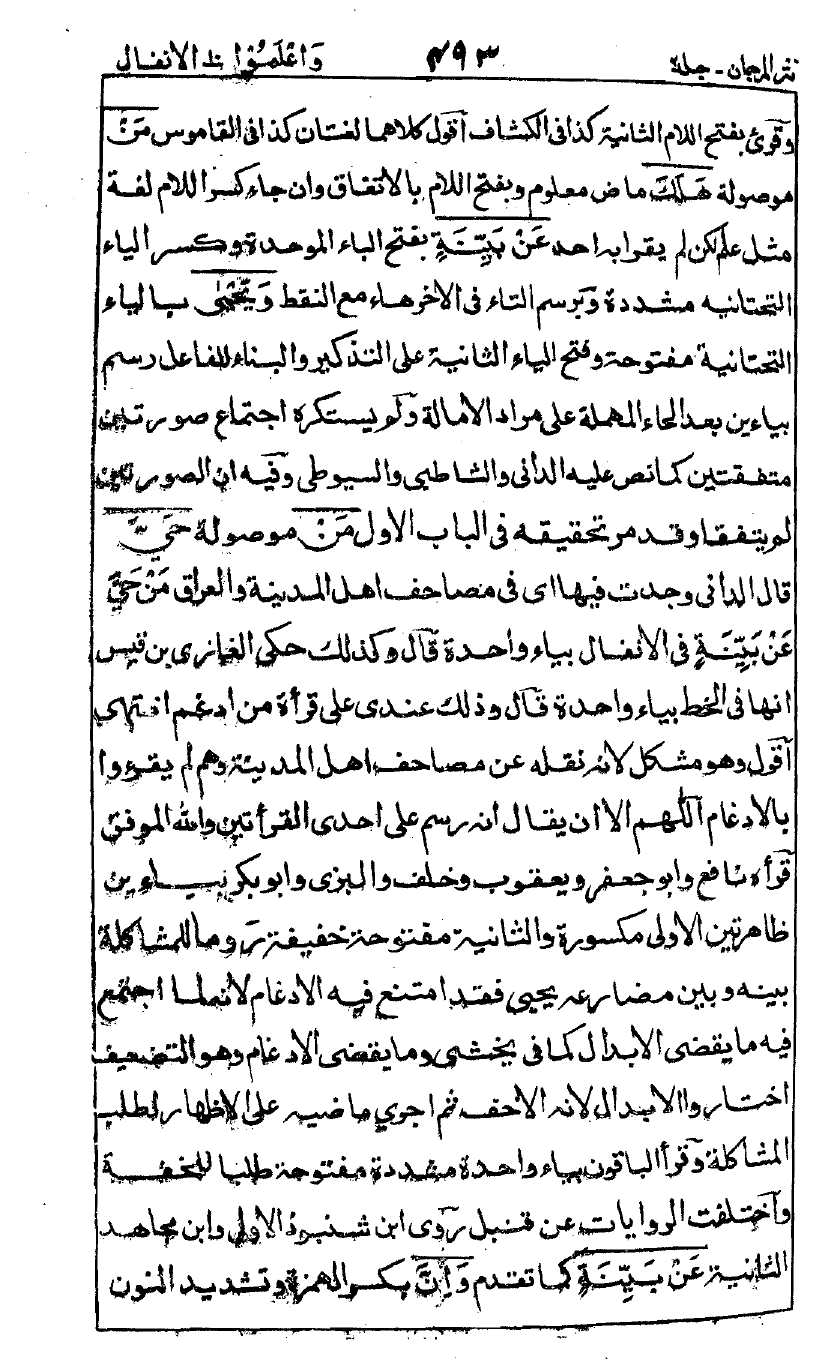 نثر المرجان - جلد ٢
٤٩٣
وَاعْلَمُوْا ١٠ الانفال
وقرئ بفتح اللام الثانية كذا فى الكشاف أقول كلاهما لغتان كذا فى القاموس مَنْ
موصولة هَلَكَ ماض معلوم وبفتح اللام بالاتفاق وان جاء كسر اللام لغة
مثل علم لكن لم يقرا به احد عَنْ بَيِّنَةٍ بفتح الباء الموحدة وكسر الياء
التحتانيه مشددة وبرسم التاء فى الاخر هاء مع النقط وَيَحْيٰى بالياء
التحتانية مفتوحة وفتح الياء الثانية على التذكير والبناء للفاعل رسم
بياءين بعد الحاء المهملة على مراد الامالة ولم يستكره اجتماع صورتين
متفقتين كما نص عليه الدانى والشاطبى والسيوطى وفيه ان الصورتين
لم يتفقا وقد مر تحقيقه فى الباب الاول مَنْ موصولة حَيَّ
قال الدانى وجدت فيها اى فى مصاحف اهل المدينة والعراق مَنْ حَيَّ
عَنْ بَيِّنَةٍ فى الانفال بياء واحدة قال وكذلك حكى الغازى بن قيس
انها فى الخط بياء واحدة قال وذلك عندى على قرأة من ادغم انتهى
أقول وهو مشكل لانه نقله عن مصاحف اهل المدينة وهم لم يقرءوا
بالادغام اللهم الا ان يقال انه رسم على احدى القرأتين والله الموفق
قرأه نافع وابو جعفر ويعقوب وخلف والبزى وابو بكر بياءين
ظاهرتين الاولى مكسورة والثانية مفتوحة خفيفة روما للمشاكلة
بينه وبين مضارعه يحيى فقد امتنع فيه الادغام لانه لما اجتمع
فيه ما يقضى الابدال كما فى يخشى وما يقضى الادغام وهو التضعيف
اختاروا الابدال لانه الاخف ثم اجرى ماضيه على الاظهار لطلب
المشاكلة وقرأ الباقون بياء واحدة مشددة مفتوحة طلبا للخفة
واختلفت الروايات عن قنبل روى ابن شنبوذ الاولى وابن مجاهد
الثانية عَنْ بَيِّنَةٍ كما تقدم وَاِنَّ بكسر الهمزة وتشديد النون